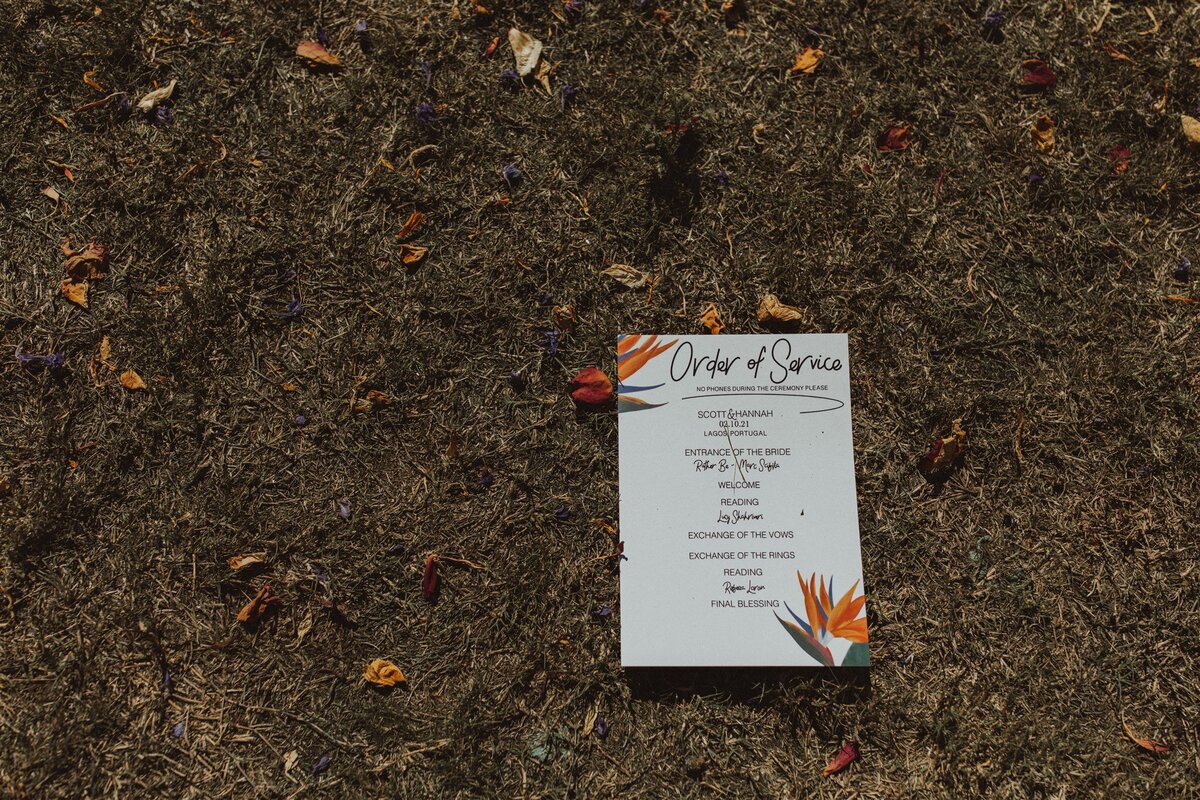 Order of Service
NO PHONES DURING THE CEREMONY PLEASE
SCOTT & HANNAH
02.10.21
LAGOS PORTUGAL
ENTRANCE OF THE BRIDE
Rather Be - Marc
WELCOME
READING
Lucy
EXCHANGE OF THE VOWS
EXCHANGE OF THE RINGS
READING
FINAL BLESSING